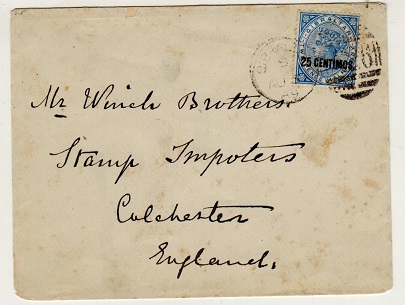 GIBRALTAR
25 CENTIMOS
Mr Winch Brothers.
Stamp Impoters
Colchester
England.